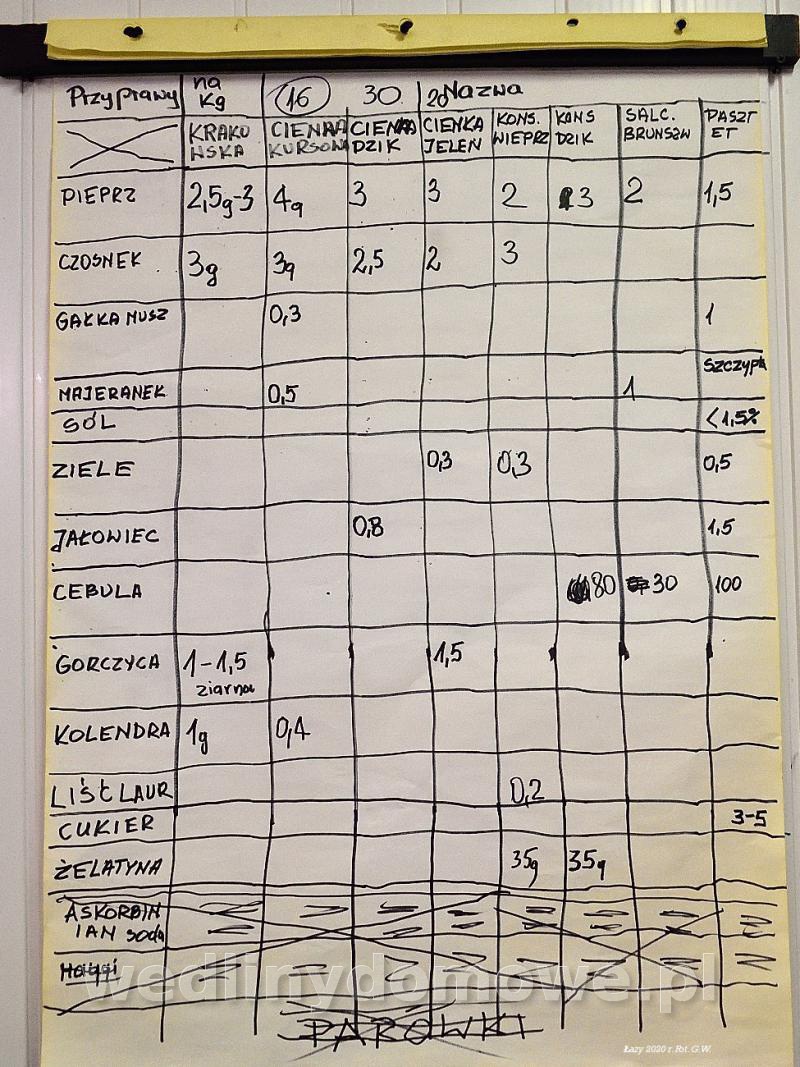 Przyprawy na Kg 16 30 20 Nazwa
KRAKO WSKA CIENKA KURSOWA CIENKA DZIK CIENKA JELEN KONS. WIEPRZ KONS DZIK SALC. BRUNSZW PASZT ET
PIEPRZ 2,5g-3 4g 3 3 2 3 2 1,5
CZOSNEK 3g 3g 2,5 2 3
GAŁKA MUSZ 0,3 1
szczypta
MAJERANEK 0,5 1
SÓL <1,5%
ZIELE 0,3 0,3 0,5
JAŁOWIEC 0,8 1,5
CEBULA 80 30 100
GORCZYCA 1-1,5 ziarna 1,5
KOLENDRA 1g 0,4
LIŚĆ LAUR 0,2
CUKIER 3-5
ŻELATYNA 35g 35g
ASKORBIN IAN soda
Maggi
wedlinydomowe.pl
PARÓWKI
Łazy 2020 r. Fot. G.W.